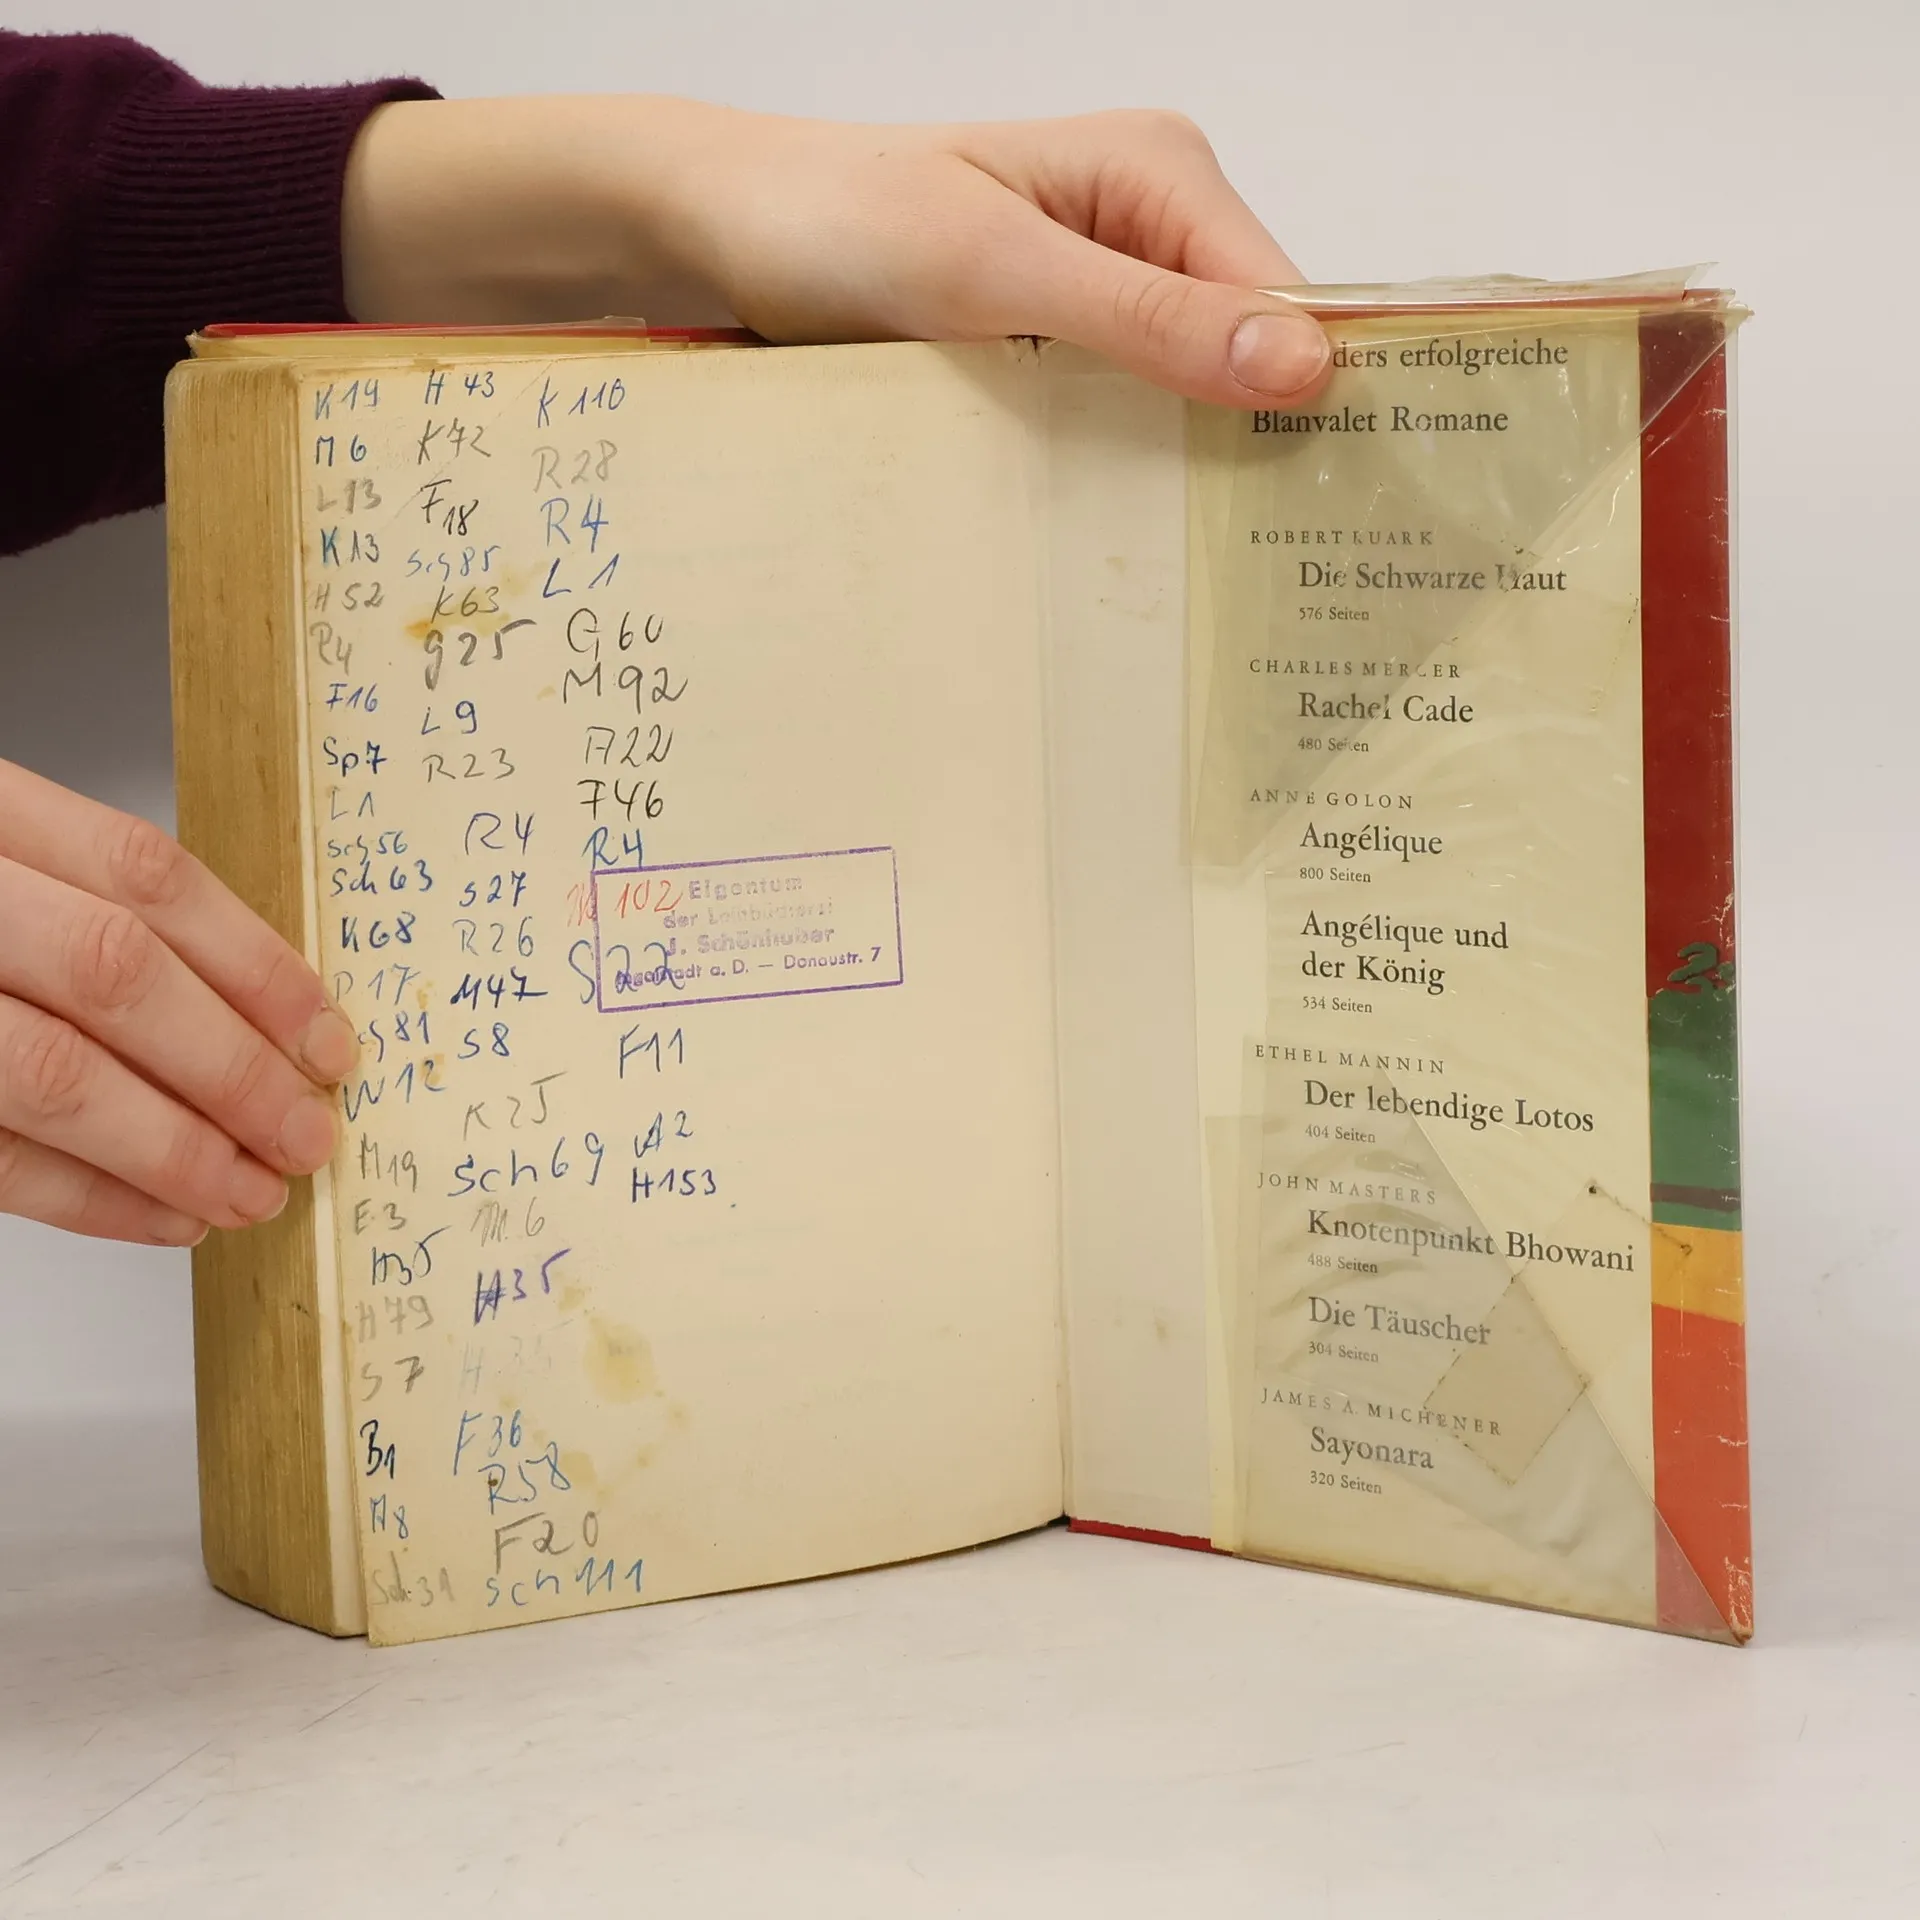 K 19
M 6
L 13
K 13
H 52
R4
F16
Sp7
L 1
Sch 56
Sch 63
K 68
P 17
81
W 12
M 19
E 3
H35
H 79
S 7
B1
A8
Sch 31
H 43
K 72
F 18
Sch 85
K 63
g 25
L 9
R 23
R 4
S 27
R 26
M47
S 8
K 25
Sch 69
M. 6
H35
F 36
R58
F20
Sch 111
K 110
R 28
R 4
L 1
G 60
M 92
A22
F46
R4
M 102
S22
F11
A 2
H153
Eigentum
der Leihbücherei
J. Schönhuber
a. D. — Donaustr. 7
ders erfolgreiche
Blanvalet Romane
ROBERT RUARK
Die Schwarze Haut
576 Seiten
CHARLES MERCER
Rachel Cade
480 Seiten
ANNE GOLON
Angélique
800 Seiten
Angélique und
der König
534 Seiten
ETHEL MANNIN
Der lebendige Lotos
404 Seiten
JOHN MASTERS
Knotenpunkt Bhowani
488 Seiten
Die Täuscher
304 Seiten
JAMES A. MICHENER
Sayonara
320 Seiten